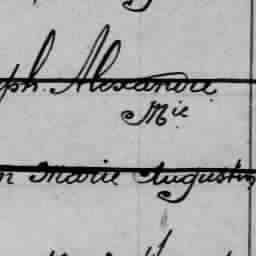 ph. Alexandre
Mie
n Marie Augustin